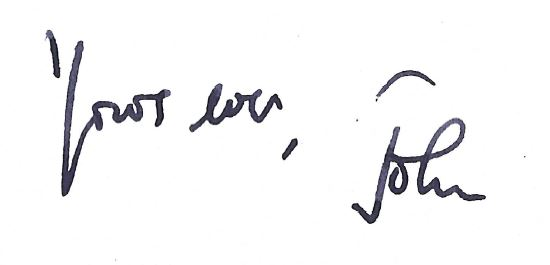 Yours ever,
John